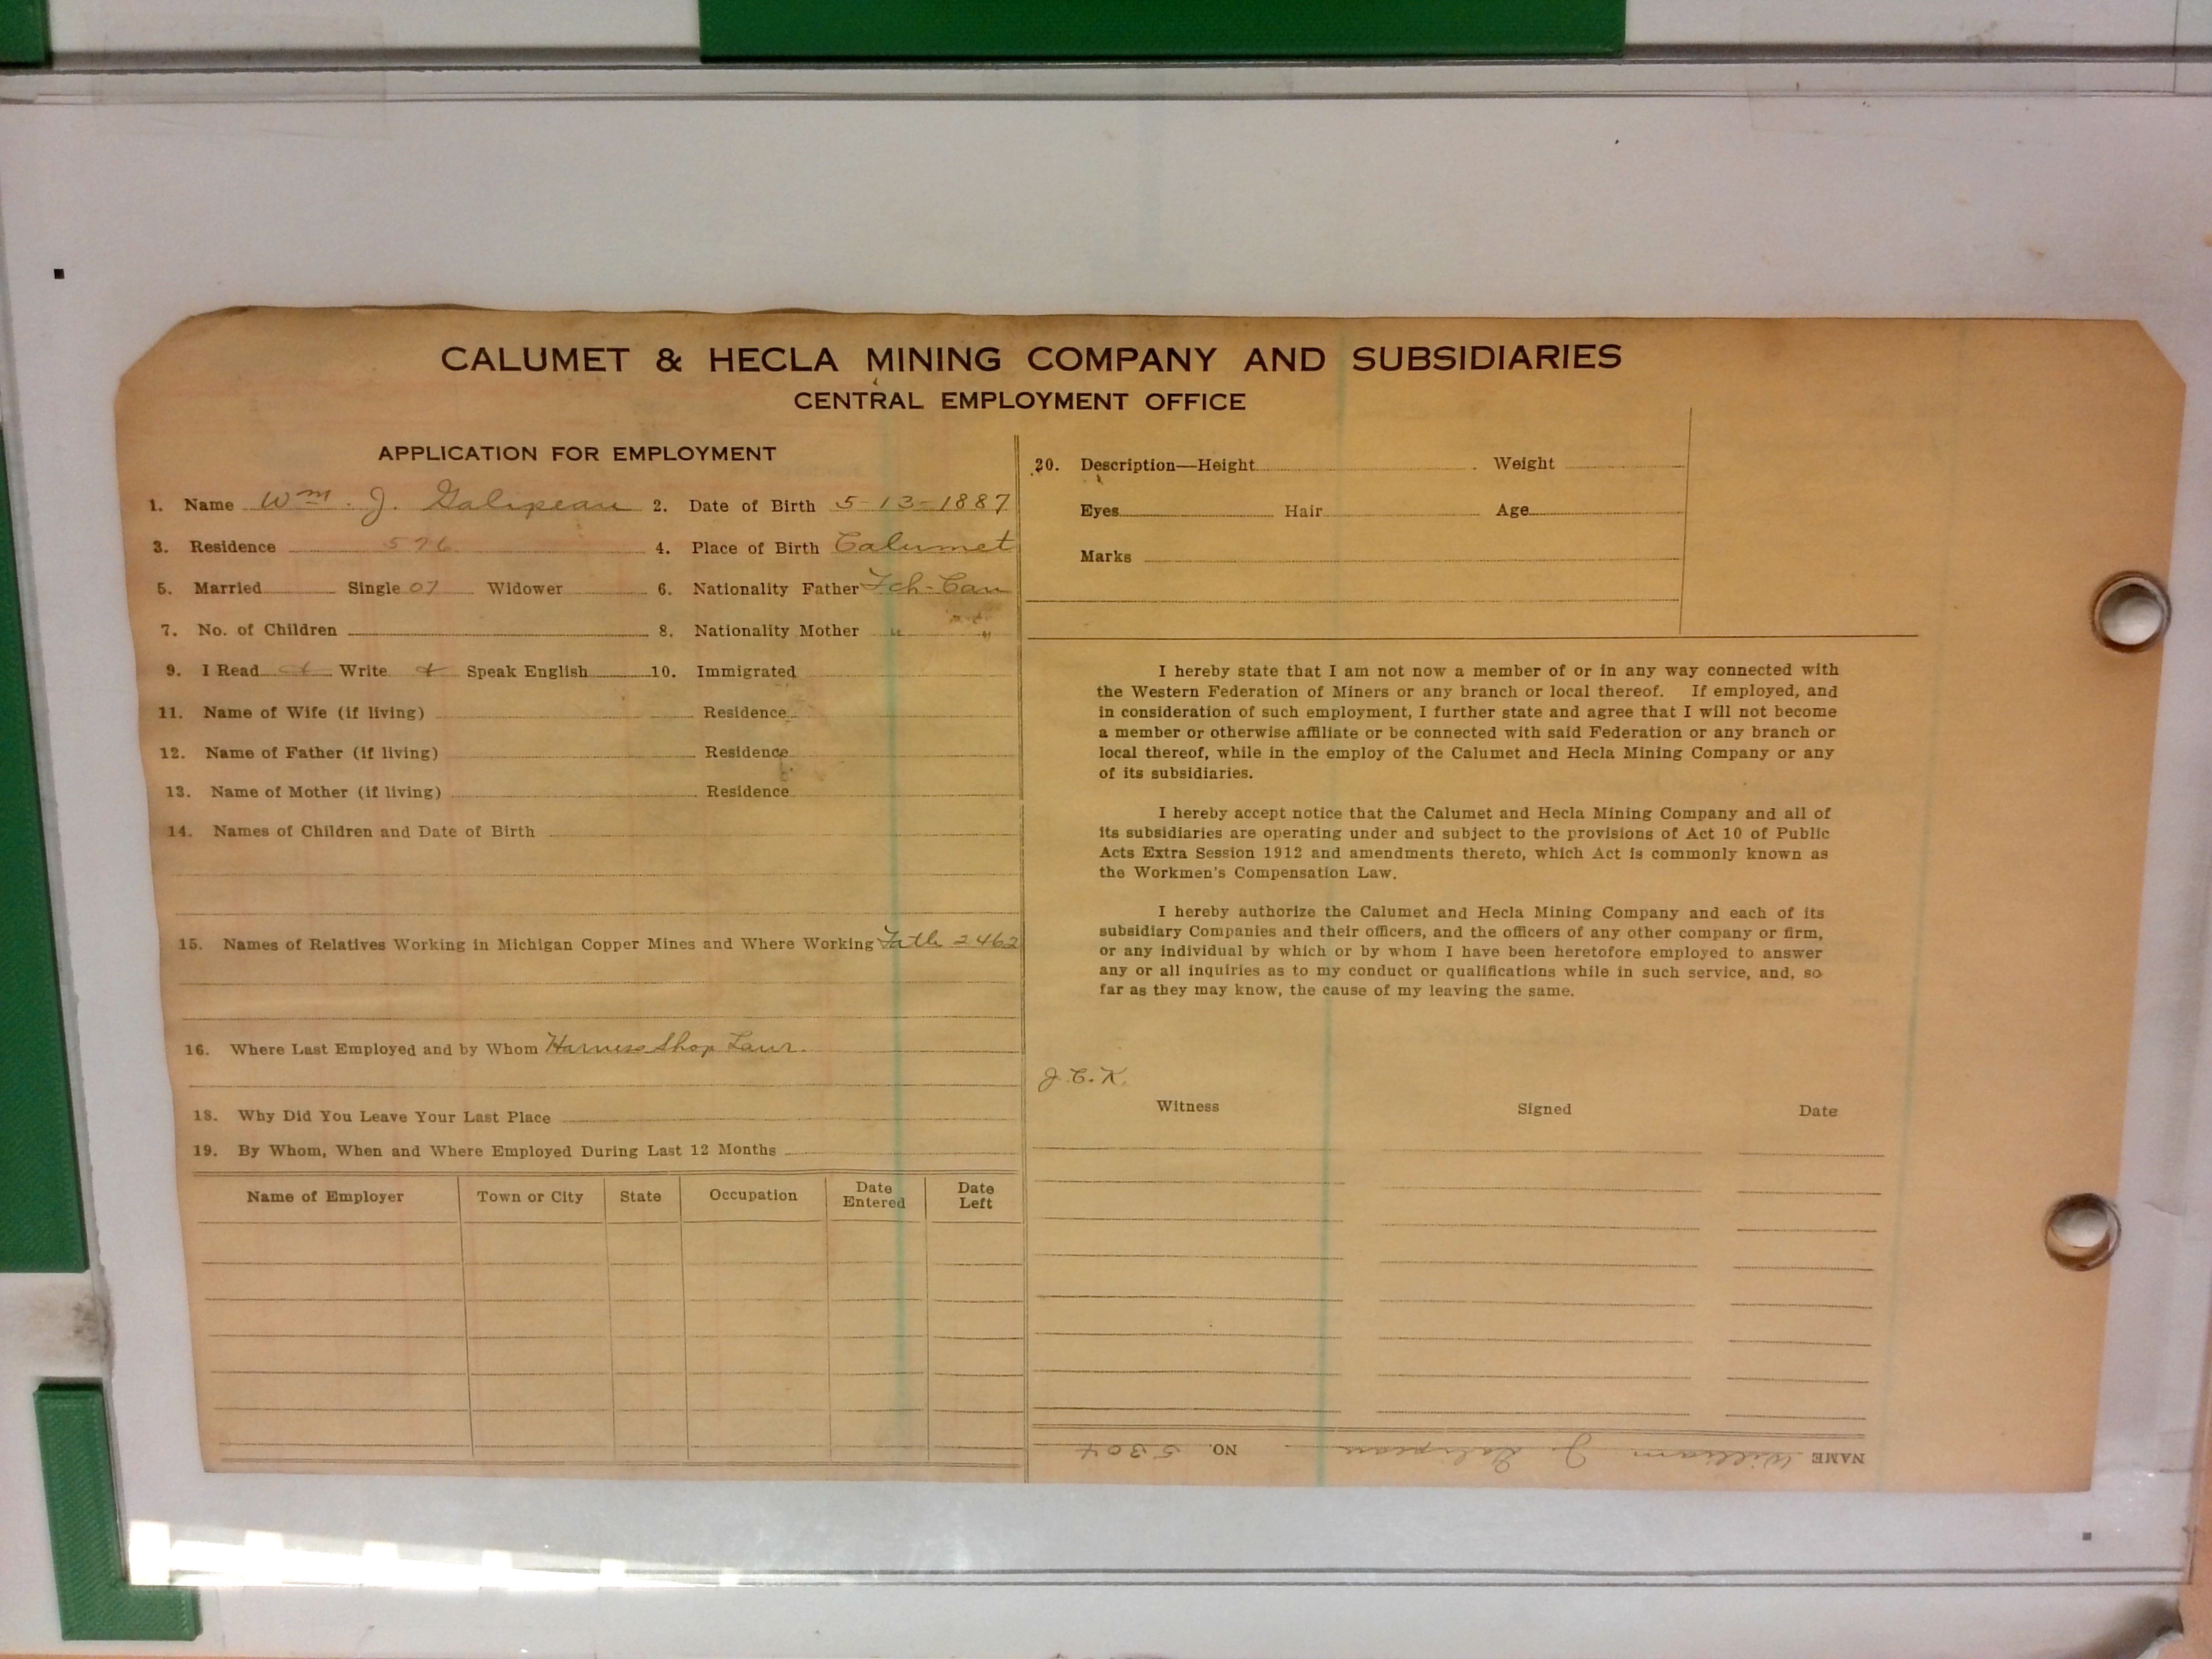 CALUMET & HECLA MINING COMPANY AND SUBSIDIARIES
CENTRAL EMPLOYMENT OFFICE
APPLICATION FOR EMPLOYMENT
1. Name Wm. J. Galipeau 2. Date of Birth 5-13-1887
3. Residence 576 4. Place of Birth Calumet
5. Married Single 07 Widower 6. Nationality Father Fch-Can
7. No. of Children 8. Nationality Mother " "
9. I Read Write Speak English 10. Immigrated
11. Name of Wife (if living) Residence
12. Name of Father (if living) Residence
13. Name of Mother (if living) Residence
14. Names of Children and Date of Birth
15. Names of Relatives Working in Michigan Copper Mines and Where Working Fath 2462
16. Where Last Employed and by Whom Harness Shop Laur.
18. Why Did You Leave Your Last Place
19. By Whom, When and Where Employed During Last 12 Months
Name of Employer Town or City State Occupation Date Entered Date Left
20. Description—Height Weight
Eyes Hair Age
Marks
I hereby state that I am not now a member of or in any way connected with
the Western Federation of Miners or any branch or local thereof. If employed, and
in consideration of such employment, I further state and agree that I will not become
a member or otherwise affiliate or be connected with said Federation or any branch or
local thereof, while in the employ of the Calumet and Hecla Mining Company or any
of its subsidiaries.
I hereby accept notice that the Calumet and Hecla Mining Company and all of
its subsidiaries are operating under and subject to the provisions of Act 10 of Public
Acts Extra Session 1912 and amendments thereto, which Act is commonly known as
the Workmen's Compensation Law.
I hereby authorize the Calumet and Hecla Mining Company and each of its
subsidiary Companies and their officers, and the officers of any other company or firm,
or any individual by which or by whom I have been heretofore employed to answer
any or all inquiries as to my conduct or qualifications while in such service, and, so
far as they may know, the cause of my leaving the same.
J.C.K.
Witness Signed Date
NAME William J. Galipeau NO. 5304